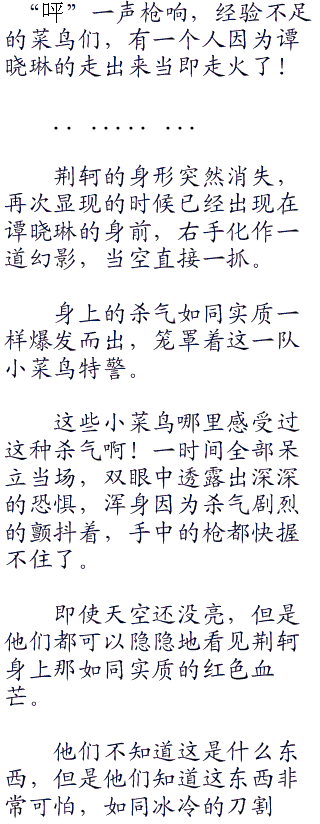 “呯”一声枪响，经验不足
的菜鸟们，有一个人因为谭
晓琳的走出来当即走火了！
．． ．．．．． ．．．
荆轲的身形突然消失，
再次显现的时候已经出现在
谭晓琳的身前，右手化作一
道幻影，当空直接一抓。
身上的杀气如同实质一
样爆发而出，笼罩着这一队
小菜鸟特警。
这些小菜鸟哪里感受过
这种杀气啊！一时间全部呆
立当场，双眼中透露出深深
的恐惧，浑身因为杀气剧烈
的颤抖着，手中的枪都快握
不住了。
即使天空还没亮，但是
他们都可以隐隐地看见荆轲
身上那如同实质的红色血
芒。
他们不知道这是什么东
西，但是他们知道这东西非
常可怕，如同冰冷的刀割